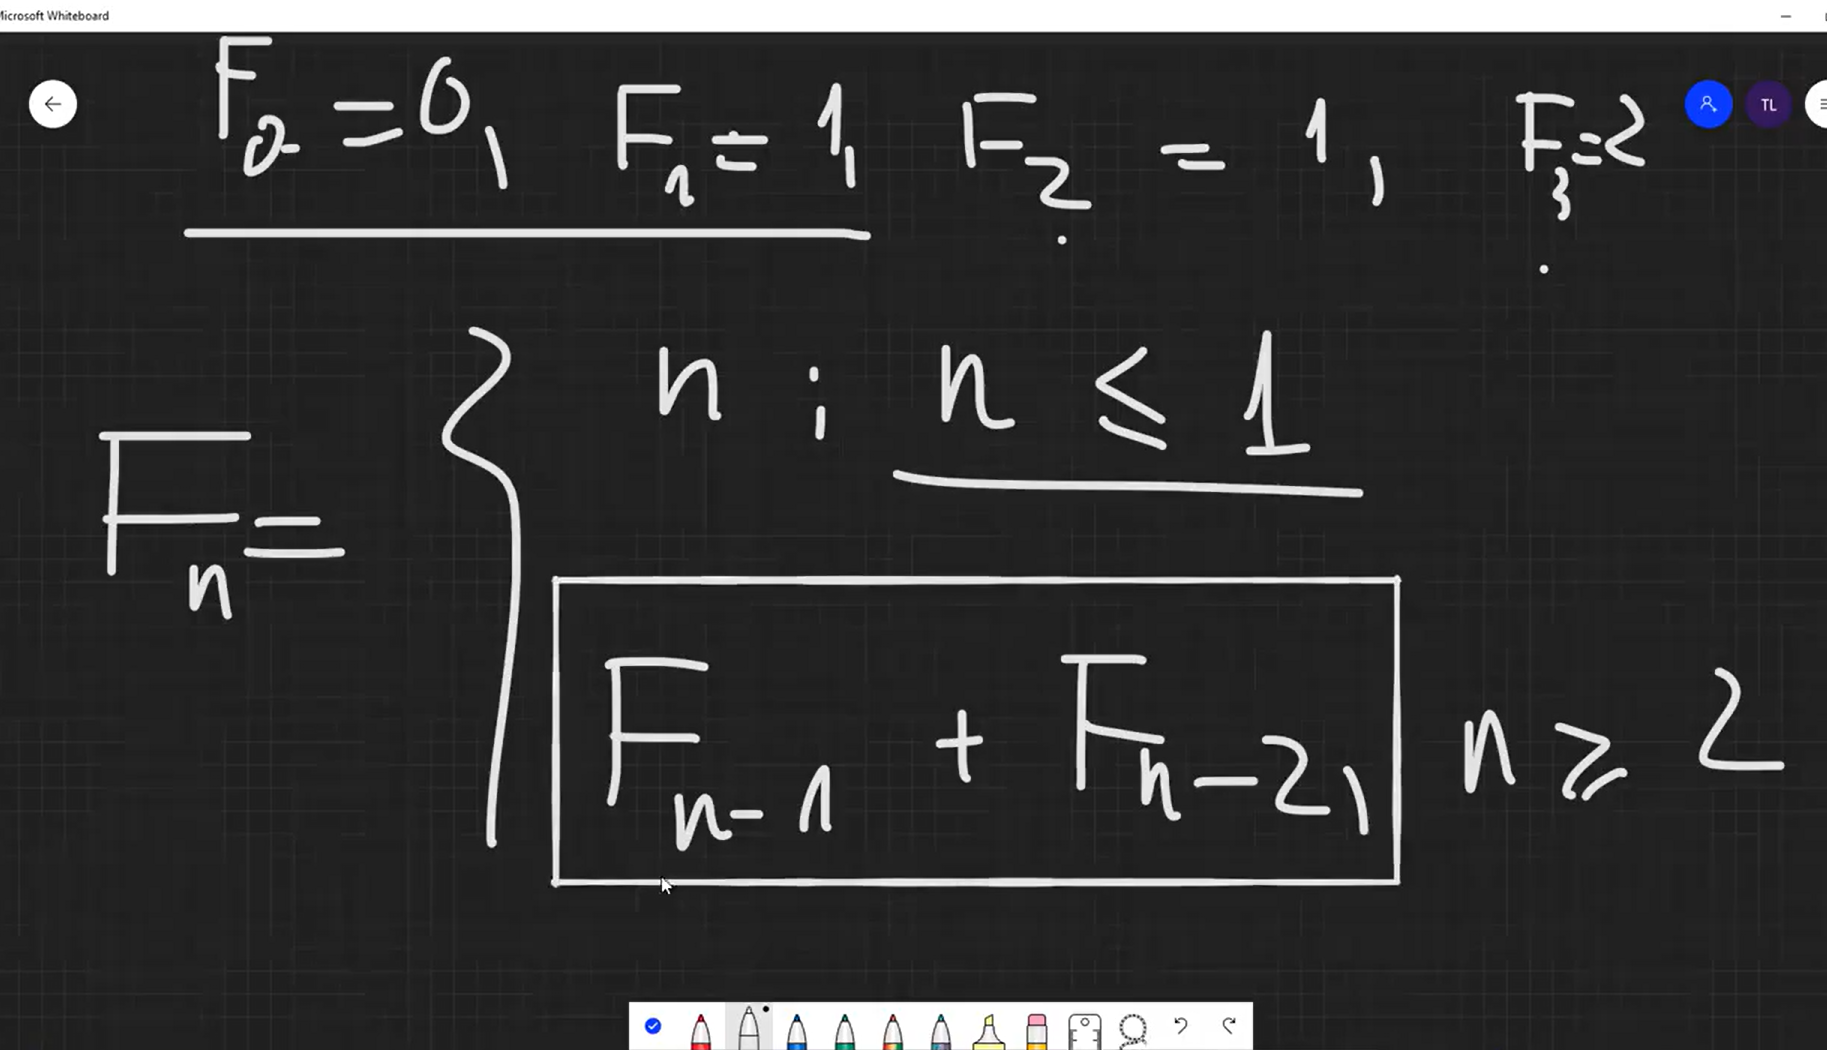 Microsoft Whiteboard
F₀ = 0, F₁ = 1, F₂ = 1, F₃ = 2
TL
n ; n ≤ 1
Fₙ = {
Fₙ₋₁ + Fₙ₋₂, n ≥ 2